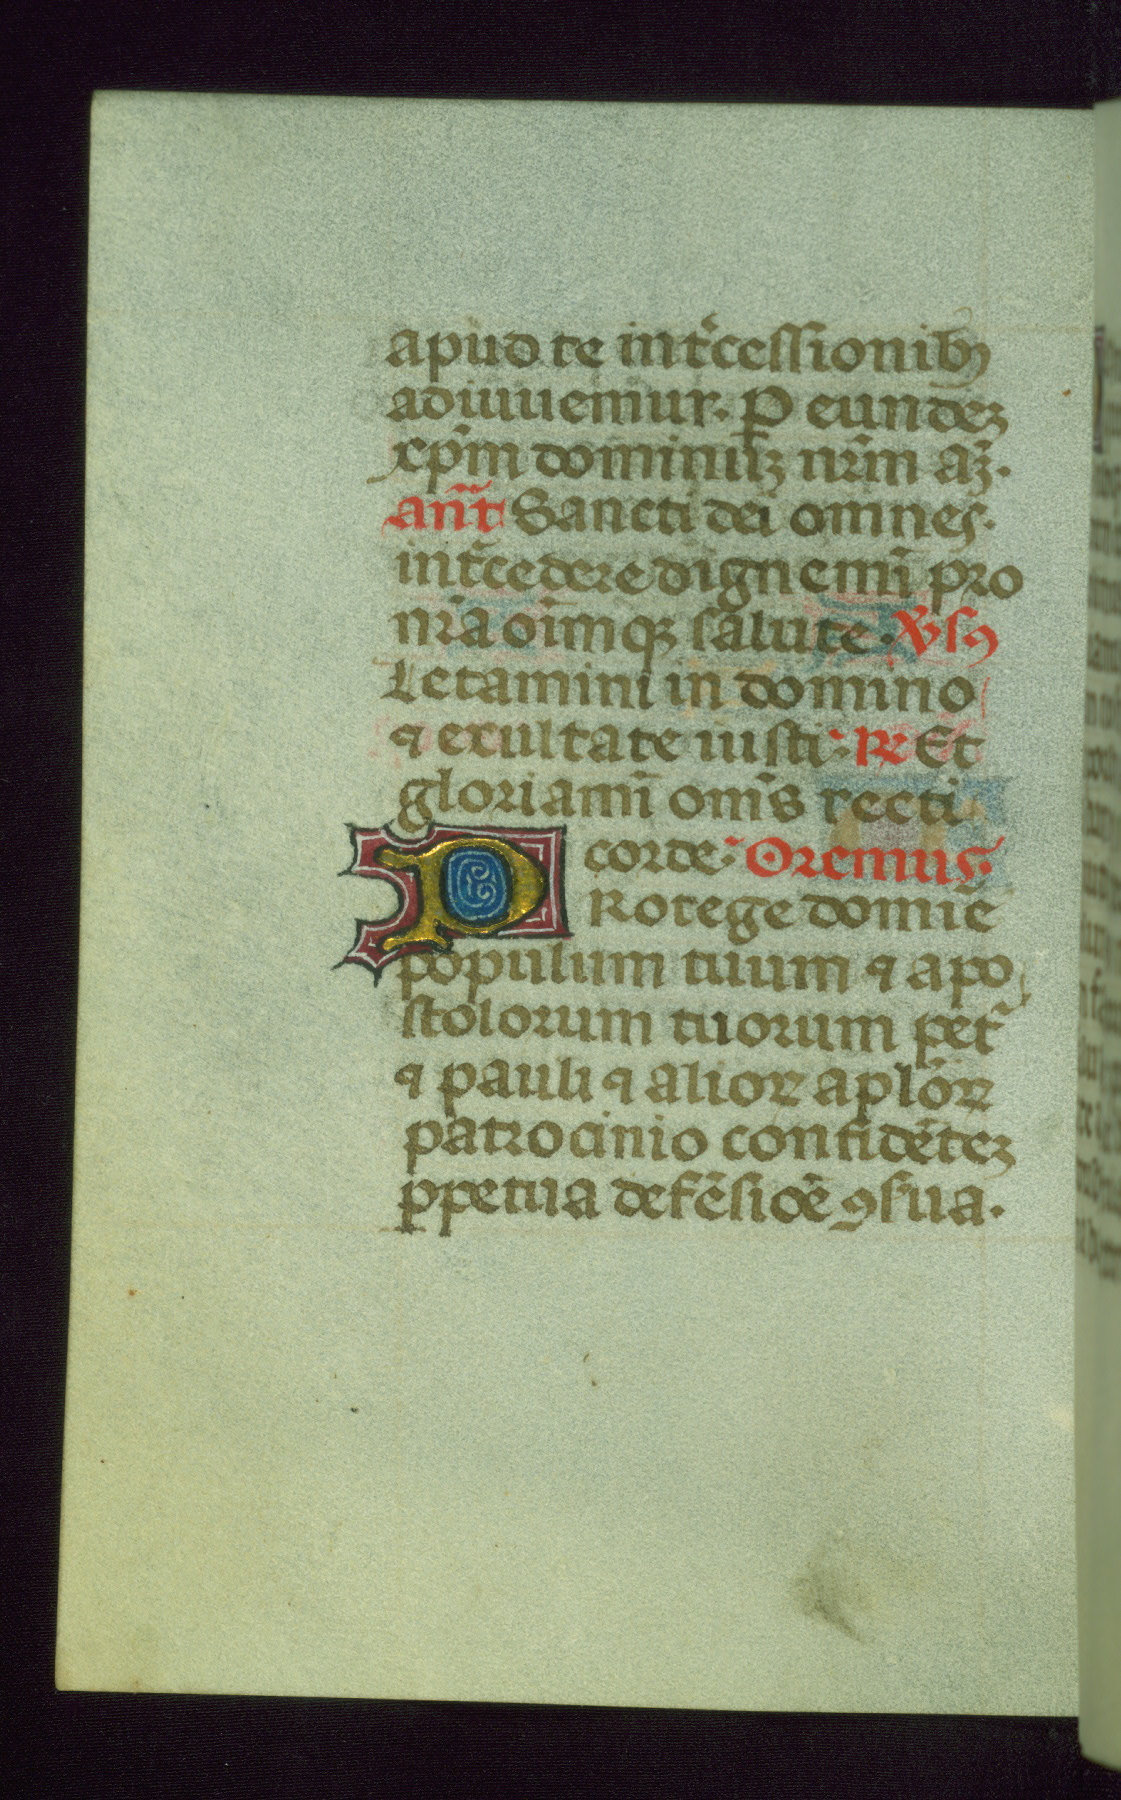 apud te int̾cessionibꝫ
adiuuemur. P̱ eundeꝫ
xp̄m dominuꝫ nr̄m aꝫ̄.
an̄t Sancti dei omnes.
int̾cedere dignemī pro
nr̄a oīmqꝫ salute. v̾sꝰ
Letamini in domino
⁊ exultate iusti. R̷ Et
gloriamī om̄s recti
corde. Oremus.
PRotege domiē
populum tuum ⁊ apo
stolorum tuorum pet͛
⁊ pauli ⁊ alioꝝ apl̄oꝝ
patrocinio confidēteꝫ
ꝑpetua defēsiōe ꝯsua.